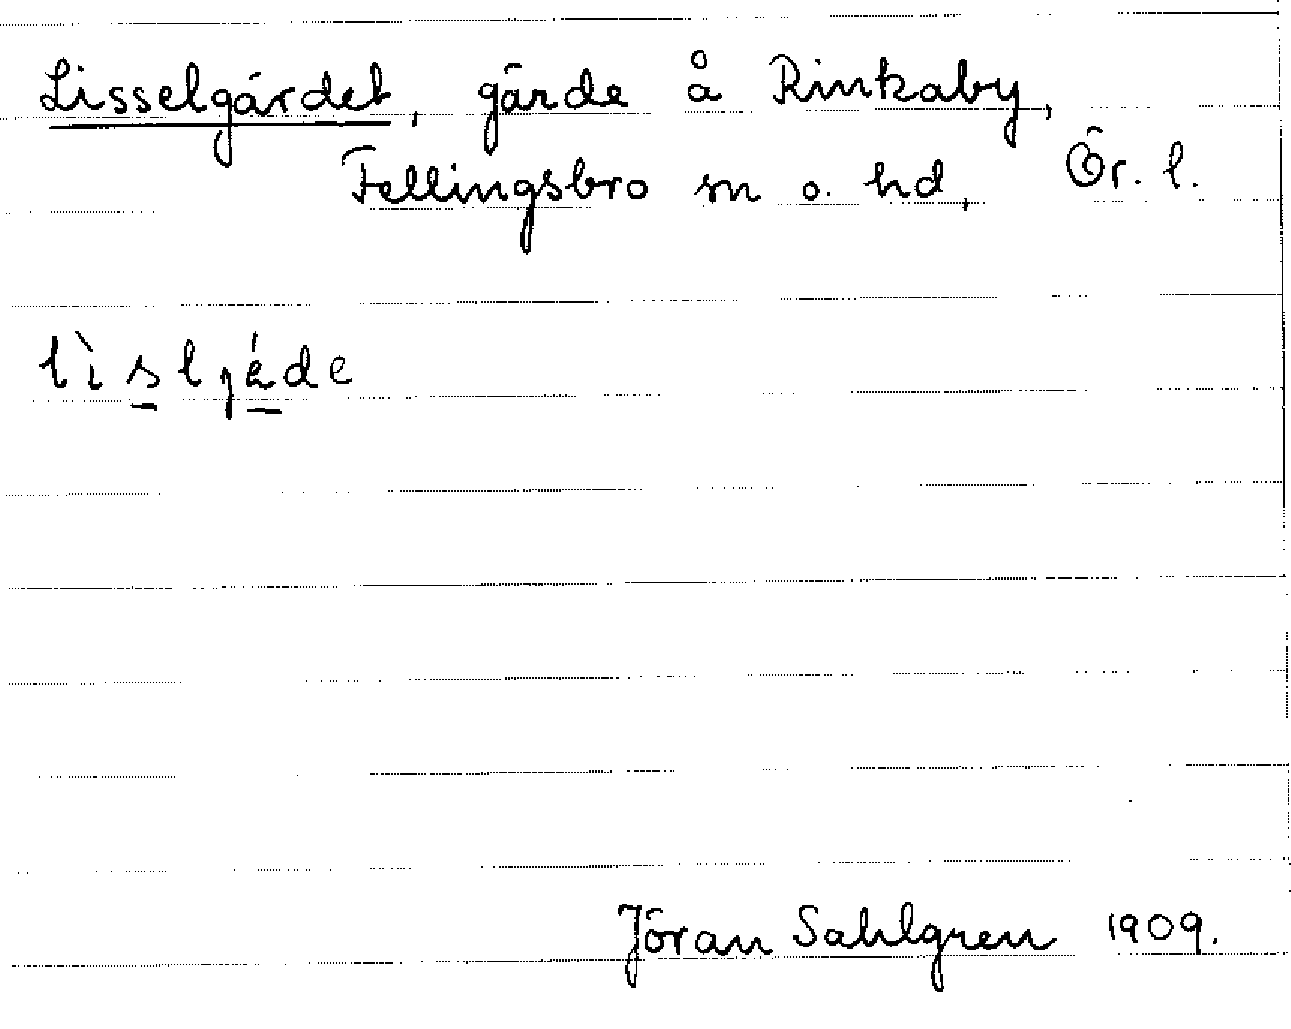 Lisselgärdet, gärde å Rinkaby,
Fellingsbro sn o. hd, Ör. l.
lìsljáde
Jöran Sahlgren 1909.